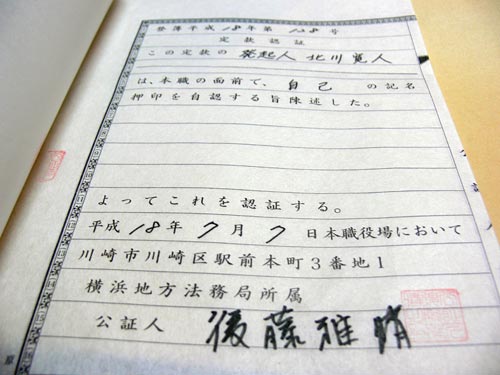 登簿平成18年第128号
定款認証
この定款の発起人 北川寛人
は、本職の面前で、自己の記名
押印を自認する旨陳述した。
よってこれを認証する。
平成18年7月7日本職役場において
川崎市川崎区駅前本町3番地1
横浜地方法務局所属
公証人 後藤雅晴